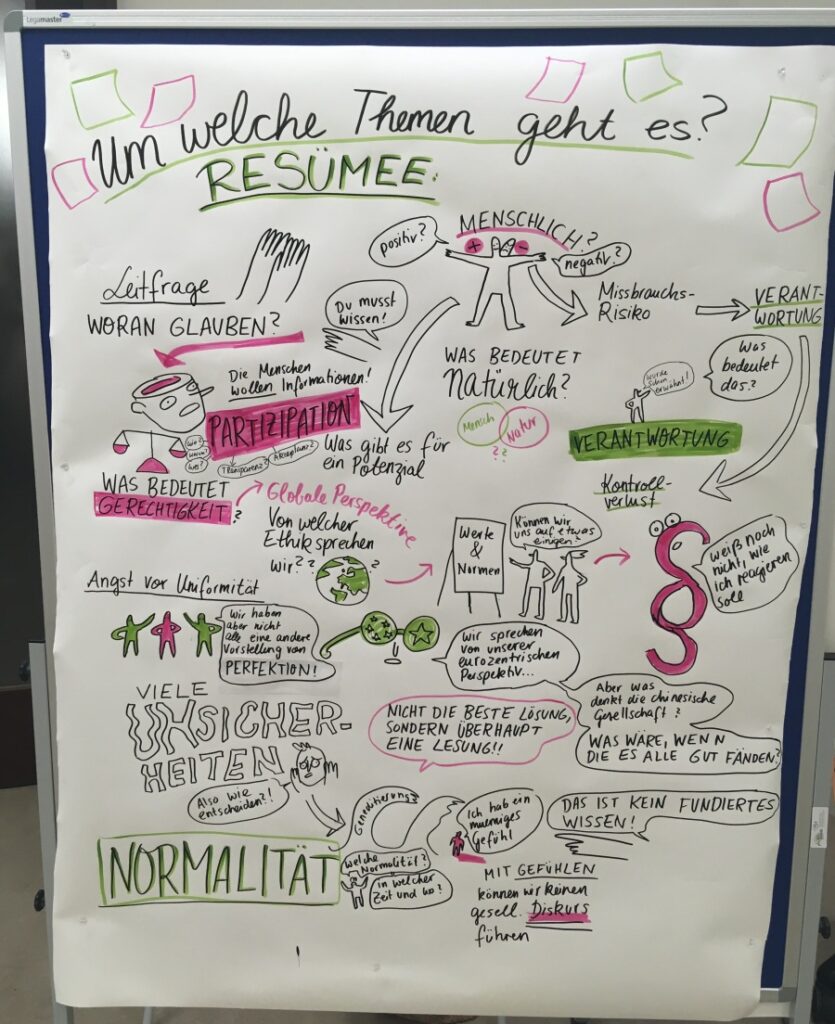 Legamaster
Um welche Themen geht es?
RESÜMEE:
MENSCHLICH?
positiv?
+
-
negativ?
Leitfrage
WORAN GLAUBEN?
Du musst
wissen!
Missbrauchs-
Risiko
VERANT-
WORTUNG
Was
bedeutet
das?
wurde
schon
erwähnt!
VERANTWORTUNG
Die Menschen
wollen Informationen!
PARTIZIPATION
Wie?
Warum?
Was?
Transparenz?
Akzeptanz?
WAS BEDEUTET
Natürlich?
Mensch
Natur
??
Was gibt es für
ein Potenzial
WAS BEDEUTET
GERECHTIGKEIT?
Globale Perspektive
Von welcher
Ethik sprechen
wir??
?
Werte
&
Normen
Können wir
uns auf etwas
einigen?
Kontroll-
verlust
§
weiß noch
nicht, wie
ich reagieren
soll
Angst vor Uniformität
Wir haben
aber nicht
alle eine andere
Vorstellung von
PERFEKTION!
Wir sprechen
von unserer
eurozentrischen
Perspektiv...
Aber was
denkt die chinesische
Gesellschaft?
WAS WÄRE, WENN
DIE ES ALLE GUT FÄNDEN?
VIELE
UNSICHER-
HEITEN
Also wie
entscheiden?!
NICHT DIE BESTE LÖSUNG,
SONDERN ÜBERHAUPT
EINE LESUNG!!
NORMALITÄT
Geneditierung?
welche
Normalität?
in welcher
Zeit und wo?
Ich hab ein
mulmiges
Gefühl
DAS IST KEIN FUNDIERTES
WISSEN!
MIT GEFÜHLEN
können wir keinen
gesell. Diskurs
führen